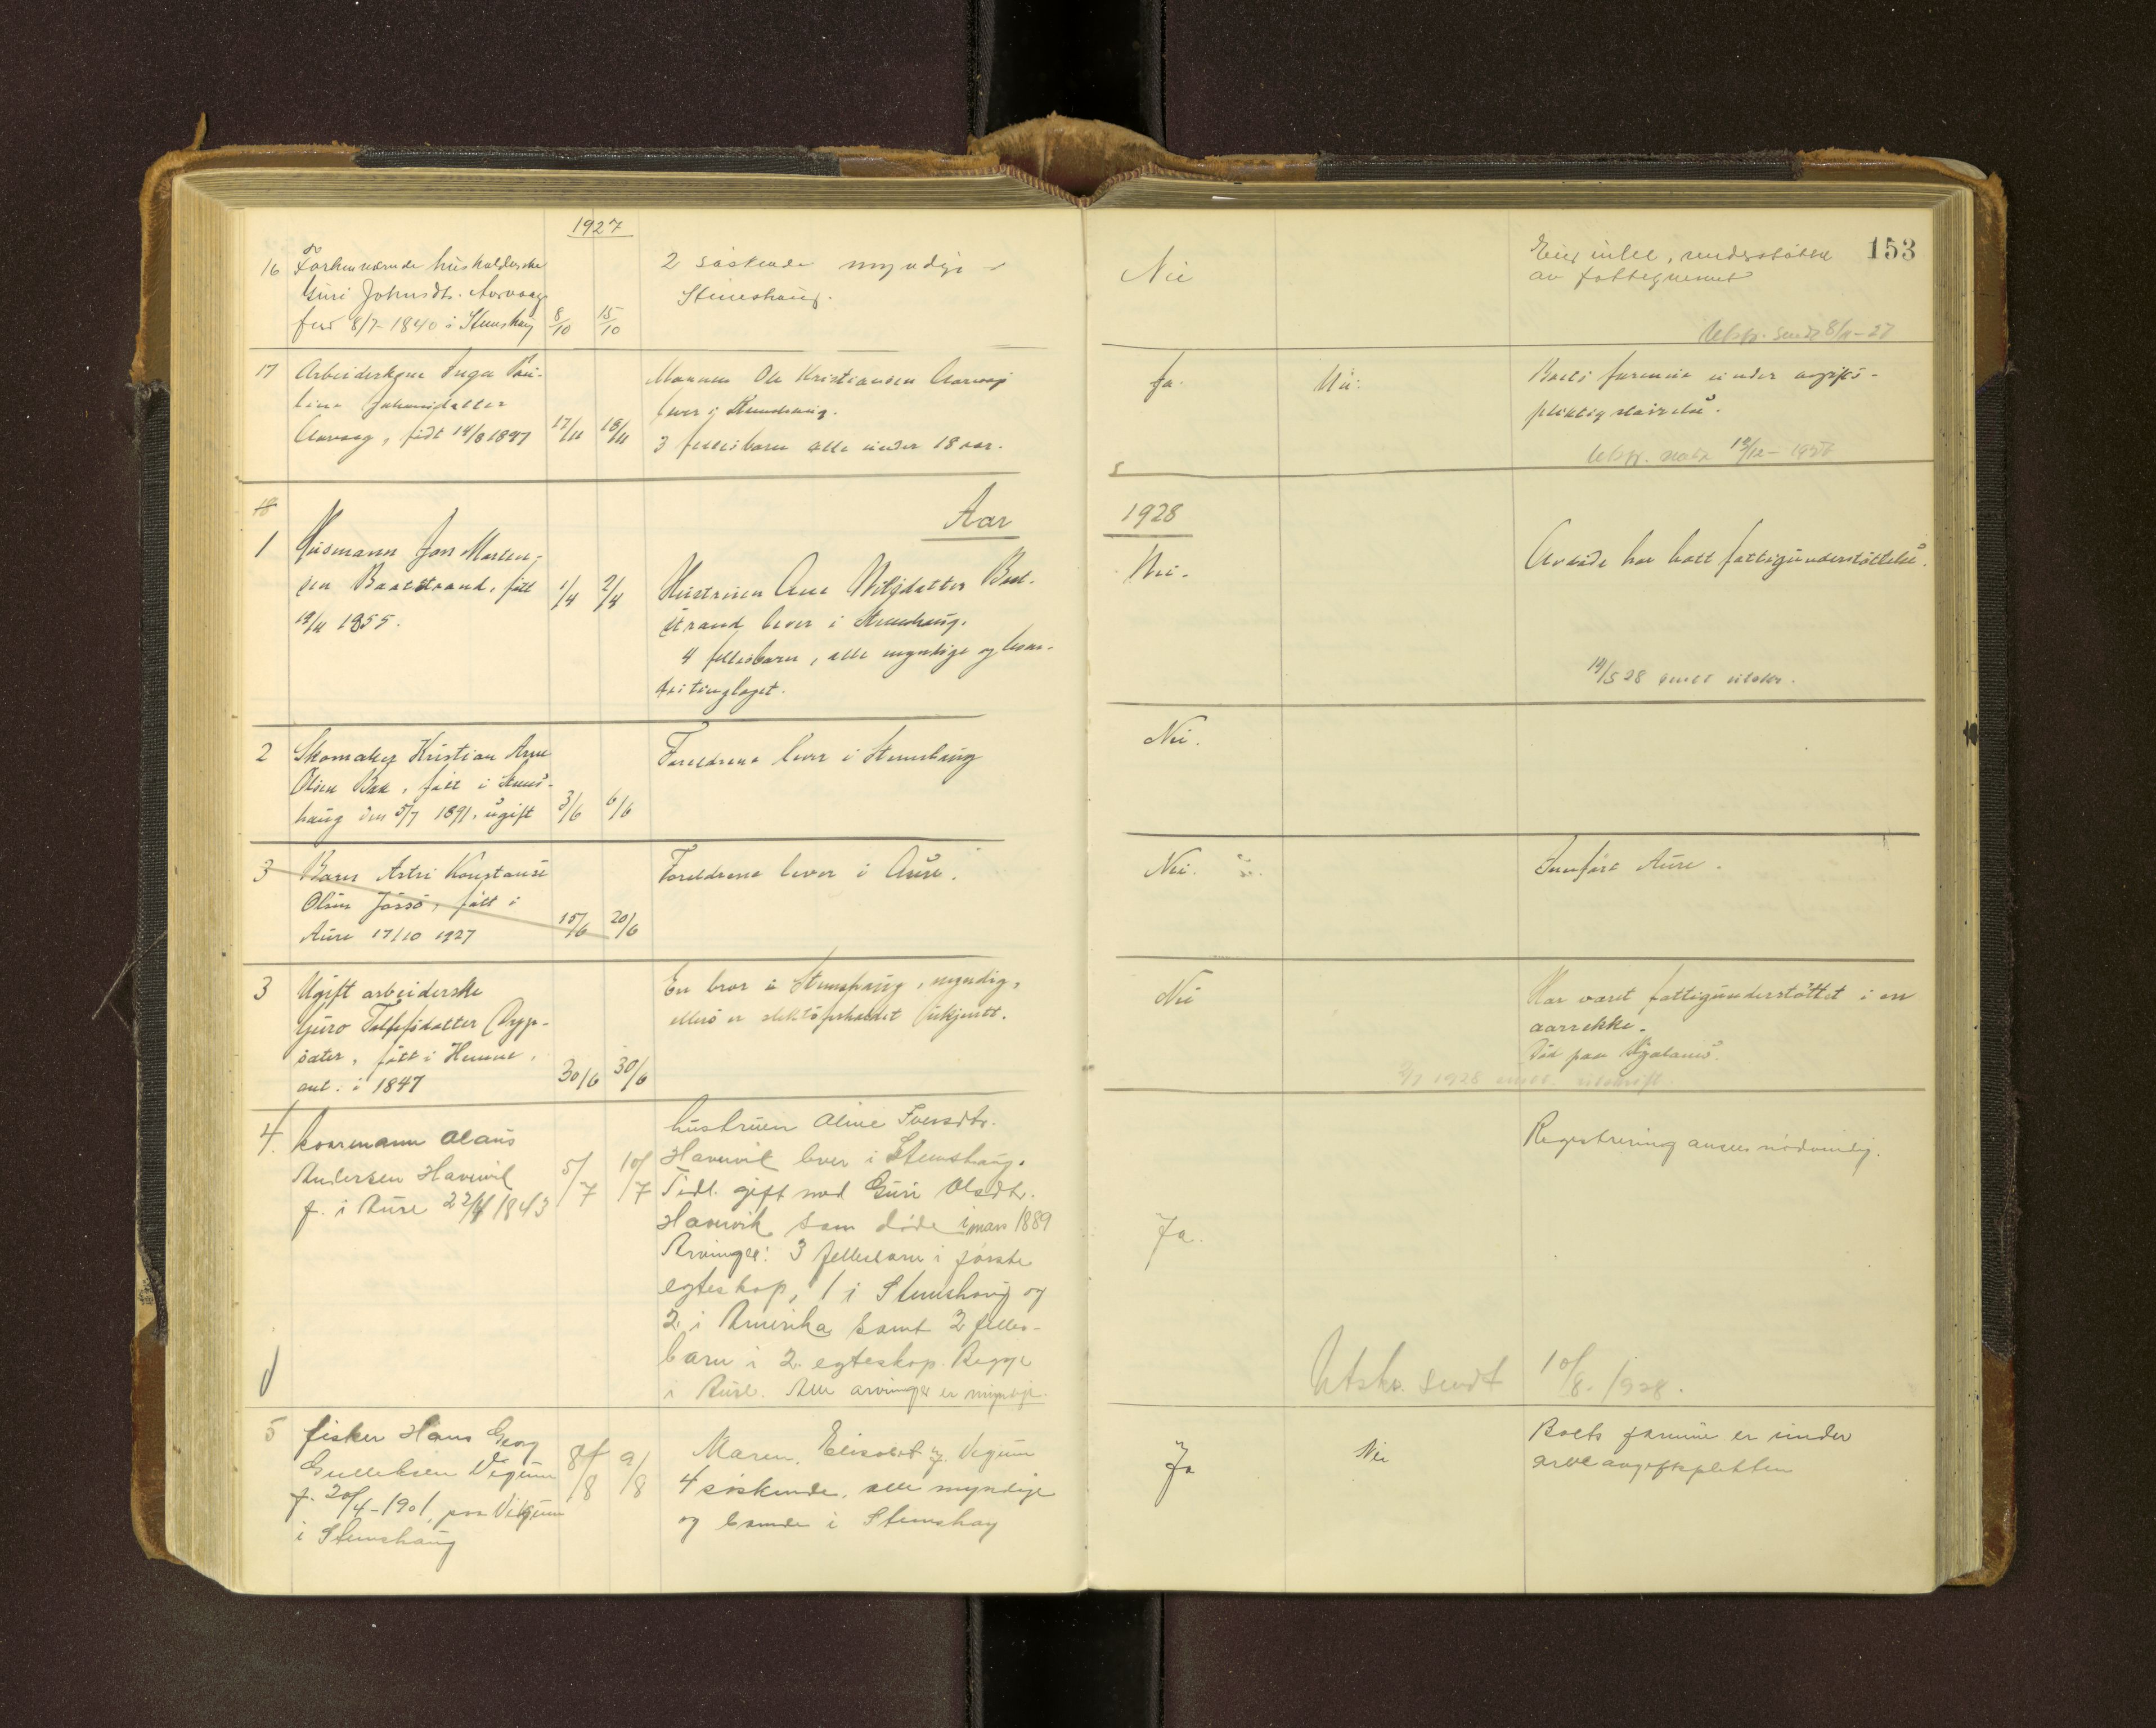 1927
153
16 Forhenværende husholderske
Guri Johnsdtr. Aarvaag
født 8/7 1840 i Stemshaug 8/10 15/10
2 søskende myndige
Stemshaug.
Nei
Eier intet, understøttet
av fattigvesenet
Utskr. sendt 8/11-27
17 Arbeiderkone Inga Pau-
line Johansdatter
Aarvaag, født 14/8 1897 17/11 18/11
Mannen Ole Kristiansen Aarvaag
lever i Stemshaug.
3 fellesbarn alle under 18 aar.
Ja. Nei.
Boets formue under avgifts-
pliktig størrelse.
Utskr. sendt 12/12-1927
18
Aar 1928
1 Husmann Jon Marten-
sen Baatstrand, født 1/4 2/4
19/11 1855.
Hustruen Ane Nilsdatter Baat-
strand lever i Stemshaug.
4 fellesbarn, alle myndige og bosat-
te i tinglaget.
Nei.
Avdøde har hatt fattigunderstøttelse.
19/5 28 sendt utskr.
2 Skomaker Kristian Arne
Olsen Bak, født i Stems-
haug den 5/7 1891, ugift 3/6 6/6
Foreldrene lever i Stemshaug
Nei.
3 Barn Astri Konstanse
Olsen Jørsø, født i
Aure 17/10 1927 15/6 20/6
Foreldrene lever i Aure.
Nei.
Innført Aure.
3 Ugift arbeiderske
Guro Tollefsdatter Dryp-
sæter, født i Hemne,
ant. i 1847 30/6 30/6
En bror i Stemshaug, myndig,
ellers er slektsforholdet ukjent.
Nei
Har været fattigunderstøttet i en
aarrekke.
Død paa
1928 sendt utskrift.
4. kaarmann Olaus
Andersen Havnvik
f. i Aure 22/4 1843 5/7 10/7
hustruen Oline Iversdtr.
Havnvik lever i Stemshaug.
Tidl. gift med Guri Olsdtr.
Havnvik som døde i mars 1889
Arvinger: 3 fellesbarn i første
egteskap, 1 i Stemshaug og
2 i Amerika samt 2 felles-
barn i 2. egteskap. Begge
i Aure. Alle arvinger er myndige.
Ja.
Registrering ansees nødvendig.
Utskr. sendt 10/8. 1928.
5 fisker Hans Georg
Gulleksen Vigum 8/8 9/8
f. 20/4-1901, paa Vikum
i Stemshaug
Maren, Elisabet Vegum
4 søskende, alle myndige
og boende i Stemshaug
Ja Nei
Boets formue er under
arveavgiftsplikten